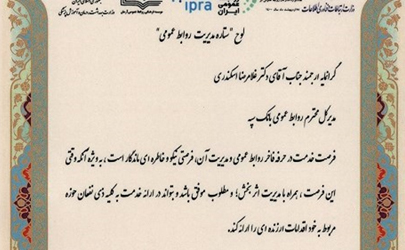 ipra
عمومی
ایران
لوح "ستاره مدیریت روابط عمومی"
گرانمایه ارجمند جناب آقای دکتر غلامرضا اسکندری
مدیرکل محترم روابط عمومی بانک سپه
فرصت خدمت در حرفه فاخر روابط عمومی و مدیریت آن، فرصتی نیکو و خاطره ای ماندگار است، به ویژه آنکه وقتی
این فرصت، همراه با مدیریت اثربخش؛ و مطلوب موفق باشد و بتواند در ارائه خدمت به کلیه ذی نفعان حوزه
مربوط به خود اقدامات ارزنده ای را ارائه کند.